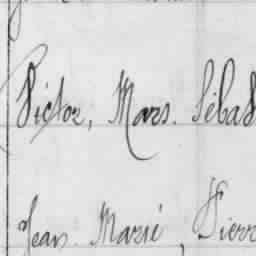 Victor, Mars. Sébas
Jean Marié, Pierr